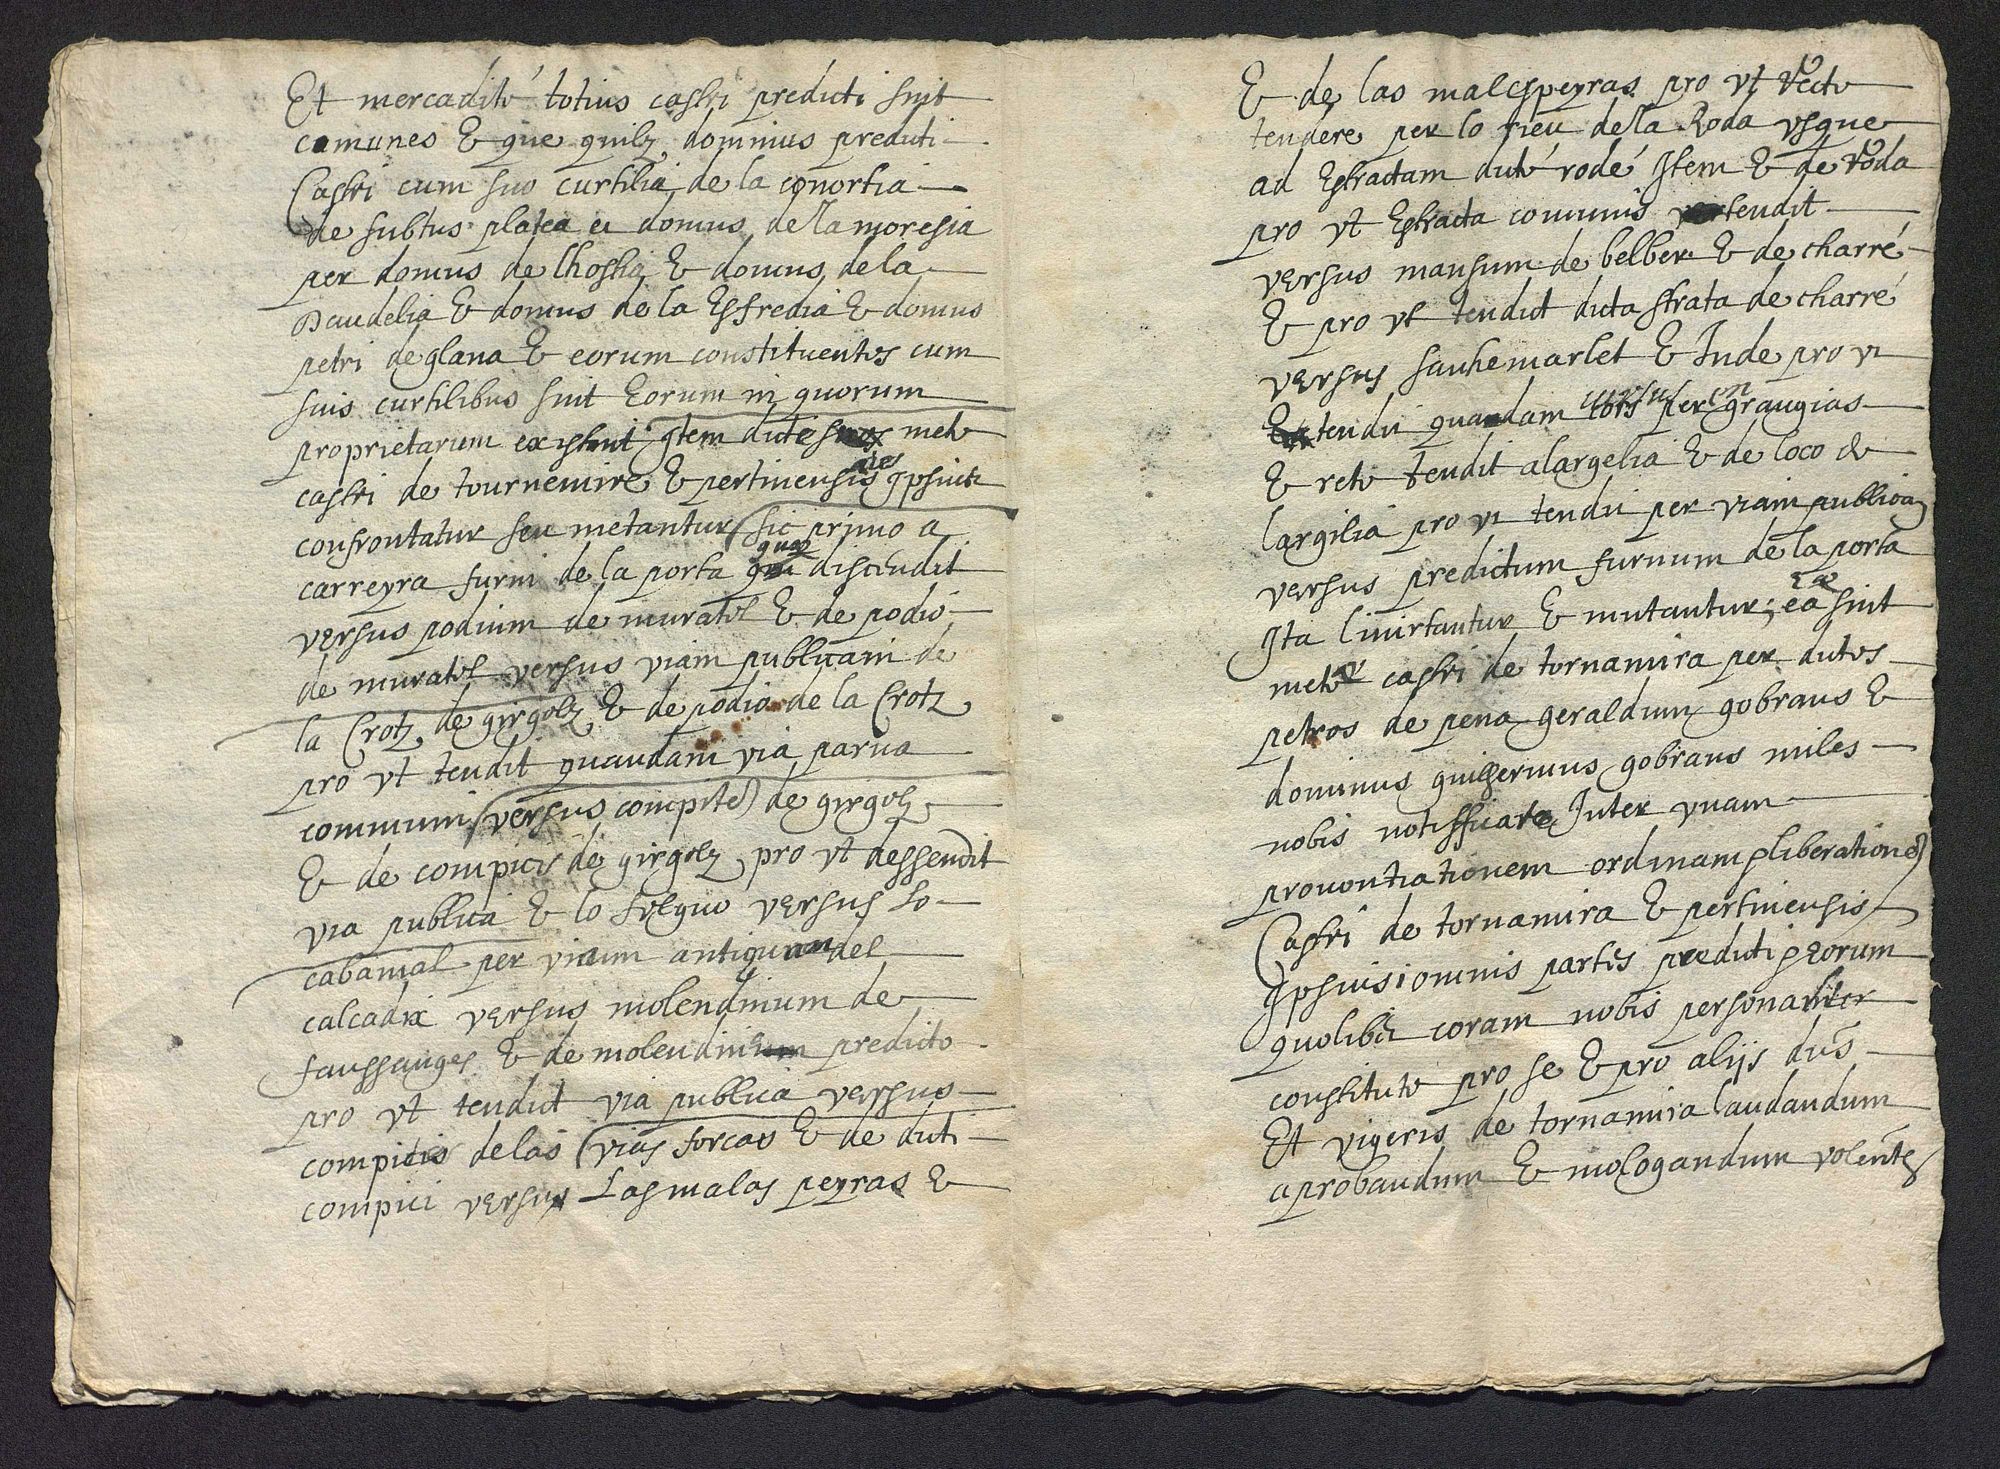 Et mercadite totius castri predicti sint
comunes & que quilz dominus predicti
Castri cum suo curtilia de la conortia
de subtus platea et domus de la moresia
per domus de lhosta & domus de la
Daudelia & domus de la Esfredia & domus
petri de glana & eorum constituentes cum
suis curtilibus sint Eorum in quorum
proprietarum existunt Item dicte mete
castri de tournemire & pertinensis ipsius
confrontatur seu metantur sic primo a
carreyra furni de la porta que discendit
versus podium de muratel & de podio
de muratel versus viam publicam de
la Crotz de girgolz & de podio de la Crotz
pro vt tendit quaudam via parua
communi versus compite de girgolz
& de compicis de girgolz pro vt dessendit
via publica & lo folquo versus lo
cabanial per viaum antiquam del
calcadix versus molendinum de
faussanges & de molendinum predicto
pro vt tendict via publica versus
compicis de las vias forcas & de dicti
compici versus Las malas peyras &
& de las malespeyras pro vt recte
tendere per lo rieu de la Roda vsque
ad Estractam dicte rode Item & de roda
pro vt Estracta comunis tendit
versus mansum de belber & de charre
& pro vt tendict dicta strata de charre
versus sanhemarlet & Inde pro vt
tendit quandam tors versus per en graugias
& recte tendit alargelia & de loco de
largilia pro vt tendit per viam publica
versus predictum furnum de la porta
Ita limitantur & mutantur; ea sint
mete castri de tornamira per dictos
petros de pena geraldum gobraus &
dominus guilhermus gobraus miles
nobis notifficare Inter vnam
provontiationem ordinam liberatione
Castri de tornamira & pertinensis
Ipsius omnis partes predicti eorum
quolibet coram nobis personaliter
constitute pro se & pro alijs dus
Et vigeris de tornamira laudandum
aprobaudum & mologandum volentes